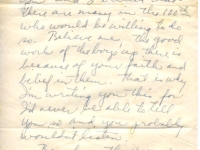 there are many in the 100th
who would be willing to do
so. Believe me, the good
work of the boys up there is
because of your faith and
belief in them. That is why
I'm writing you this for
I'd never be able to tell
you so and you probably
wouldn't listen.